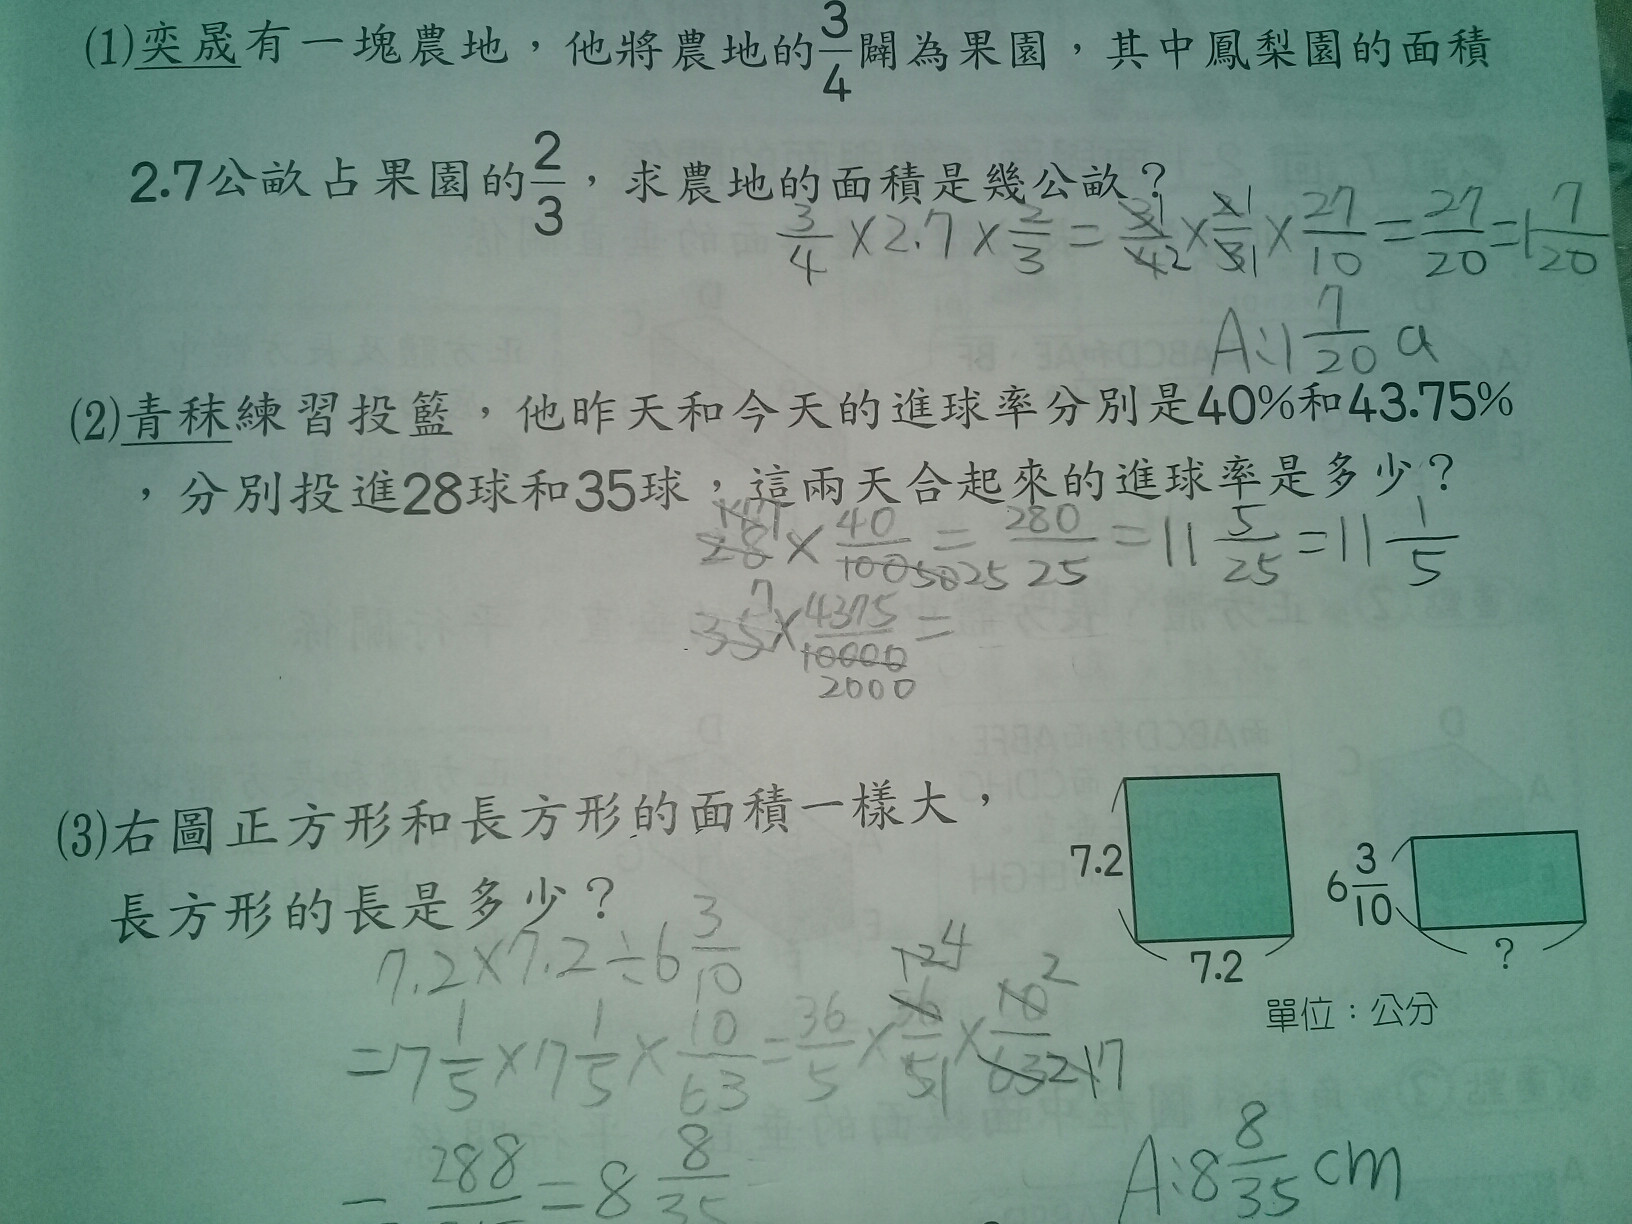 (1)奕晟有一塊農地，他將農地的3/4闢為果園，其中鳳梨園的面積
2.7公畝占果園的2/3，求農地的面積是幾公畝？
3/4 × 2.7 × 2/3 = 31/42 × 21/31 × 27/10 = 27/20 = 1 7/20
A:1 7/20 a
(2)青秣練習投籃，他昨天和今天的進球率分別是40%和43.75%
，分別投進28球和35球，這兩天合起來的進球率是多少？
28 × 40/100 50 25 = 280/25 = 11 5/25 = 11 1/5
7
35 × 4375/10000 =
2000
(3)右圖正方形和長方形的面積一樣大，
長方形的長是多少？
7.2
7.2
6 3/10
？
單位：公分
7.2×7.2÷6 3/10
=7 1/5 × 7 1/5 × 10/63 = 36/5 × 36/51 × 10/63
12 4
2
21 7
288
= 8 8/35
A:8 8/35 cm